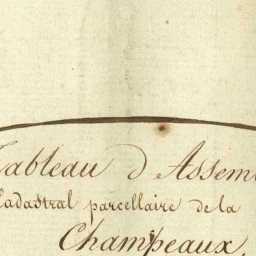 Tableau d'Assem
Cadastral parcellaire de la
Champeaux,